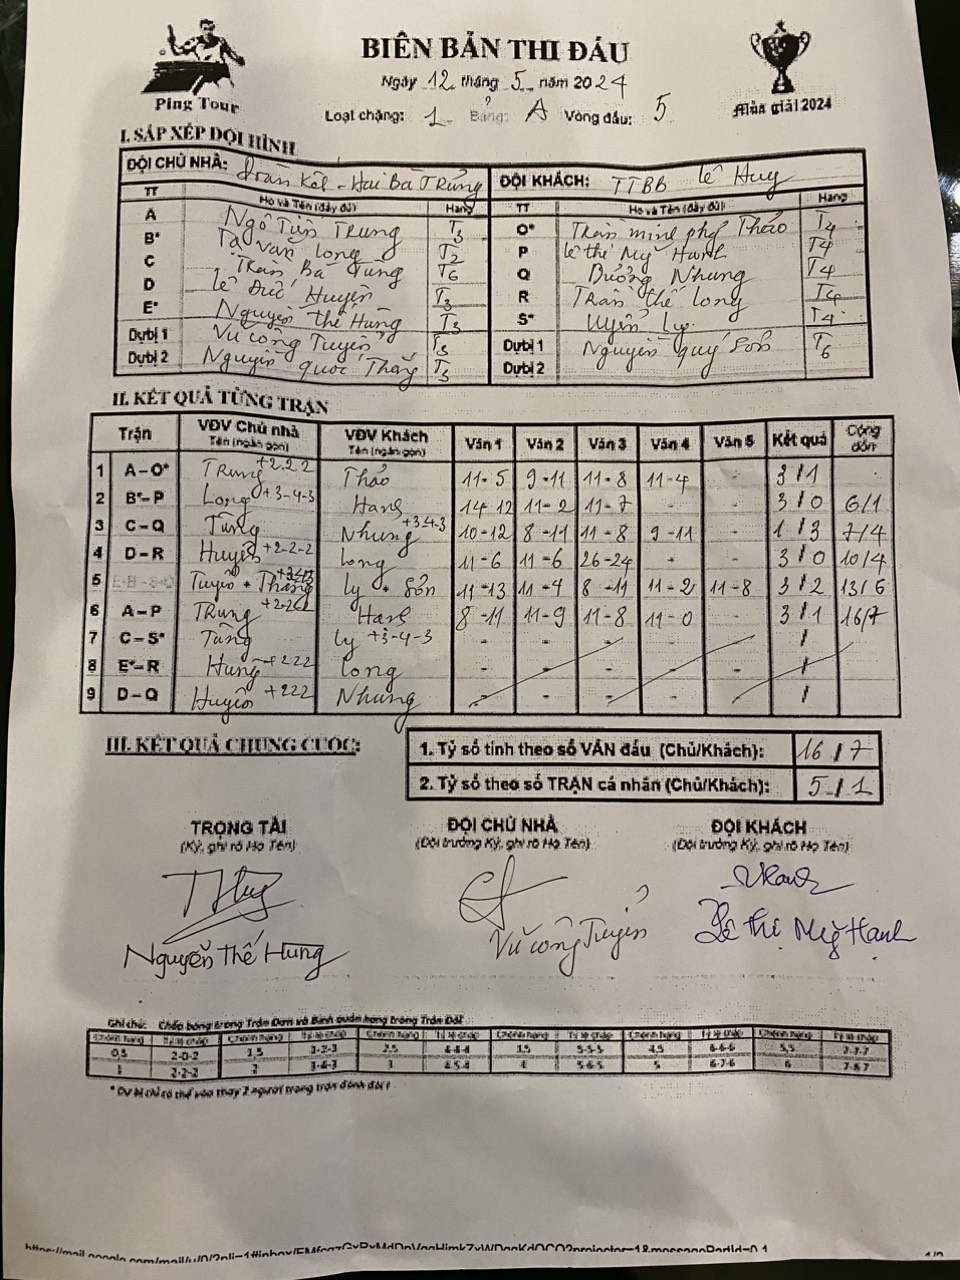 BIÊN BẢN THI ĐẤU
Ngày 12 tháng 5 năm 2024
Ping Tour
Loạt chặng: 1 Bảng: A Vòng đấu: 5
Mùa giải 2024
I. SẮP XẾP ĐỘI HÌNH
ĐỘI CHỦ NHÀ: Đoàn Kết - Hai Bà Trưng ĐỘI KHÁCH: TTBB Lê Huy
TT Họ và Tên (đầy đủ) Hạng TT Họ và Tên (đầy đủ) Hạng
A Ngô Tiến Trung T3 O* Trần minh phg Thảo T4
B* Tạ văn Long T2 P Lê thị Mỹ Hanh T4
C Trần Bá Tùng T6 Q Dương Nhung T4
D Lê Đức Huyên T3 R Trần thế Long T4
E* Nguyễn Thế Hùng T3 S* Uyển Ly T4
Dự bị 1 Vũ Công Tuyển T3 Dự bị 1 Nguyễn quý Sơn T6
Dự bị 2 Nguyễn quốc Thắng T3 Dự bị 2
II. KẾT QUẢ TỪNG TRẬN
Trận VĐV Chủ nhà Tên (ngắn gọn) VĐV Khách Tên (ngắn gọn) Ván 1 Ván 2 Ván 3 Ván 4 Ván 5 Kết quả Cộng dồn
1 A – O* Trung +2.2.2 Thảo 11-5 9-11 11-8 11-4 - 3/1
2 B* – P Long +3-4-3 Hanh 14-12 11-2 11-7 - - 3/0 6/1
3 C – Q Tùng Nhung +3-4-3 10-12 8-11 11-8 9-11 - 1/3 7/4
4 D – R Huyên +2-2-2 Long 11-6 11-6 26-24 - - 3/0 10/4
5 Tuyển + Thắng Ly + Sơn 11-13 11-4 8-11 11-2 11-8 3/2 13/6
6 A – P Trung Hanh 8-11 11-9 11-8 11-0 - 3/1 16/7
7 C – S* Tùng Ly +3-4-3 - - - - - /
8 E* – R Hùng +222 Long - - - - - /
9 D – Q Huyên +222 Nhung - - - - - /
III. KẾT QUẢ CHUNG CUỘC:
1. Tỷ số tính theo số VÁN đấu (Chủ/Khách): 16/7
2. Tỷ số theo số TRẬN cá nhân (Chủ/Khách): 5/1
TRỌNG TÀI ĐỘI CHỦ NHÀ ĐỘI KHÁCH
(Ký, ghi rõ Họ Tên) (Đội trưởng Ký, ghi rõ Họ Tên) (Đội trưởng Ký, ghi rõ Họ Tên)
Nguyễn Thế Hùng Vũ Công Tuyển Lê Thị Mỹ Hạnh
Ghi chú: Chấp bóng trong Trận Đơn và Bình quân hạng trong Trận Đôi
Chênh hạng Tỷ lệ chấp Chênh hạng Tỷ lệ chấp Chênh hạng Tỷ lệ chấp Chênh hạng Tỷ lệ chấp Chênh hạng Tỷ lệ chấp Chênh hạng Tỷ lệ chấp
0,5 2-0-2 1,5 3-2-3 2,5 4-4-4 3,5 5-5-5 4,5 6-6-6 5,5 7-7-7
1 2-2-2 2 3-4-3 3 4-5-4 4 5-6-5 5 6-7-6 6 7-8-7
* Dự bị chỉ có thể vào thay 2 người trong trận đánh đôi !